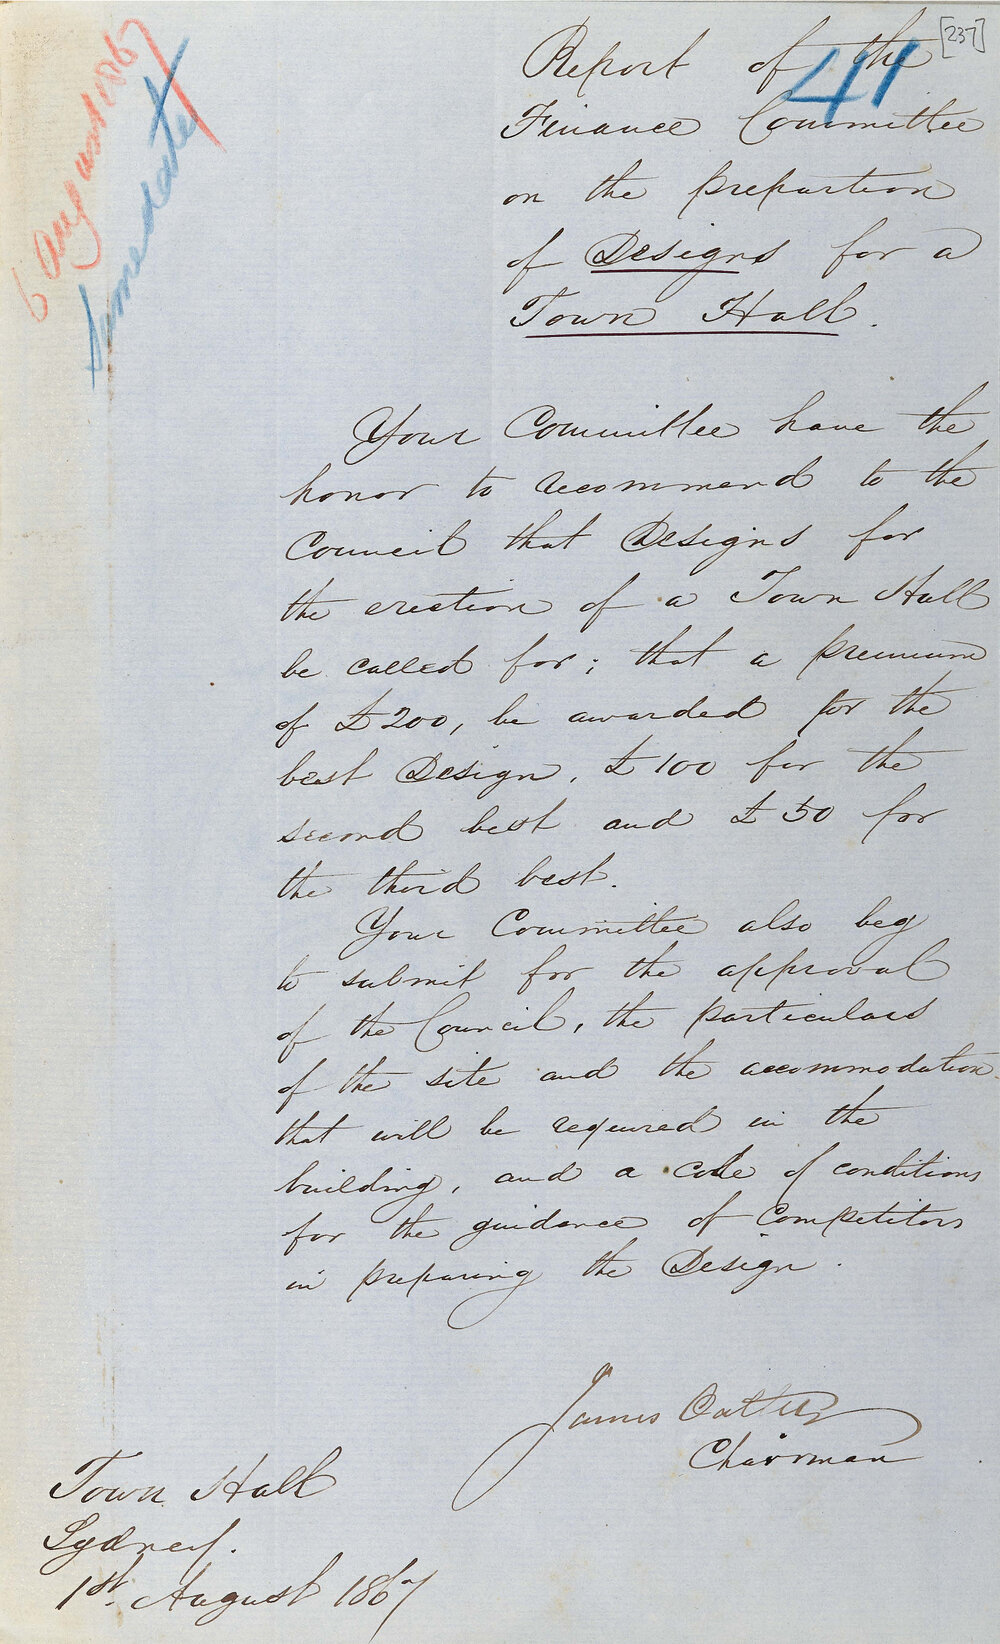 [237]
41
6 August 1867
Immediate
Report of the
Finance Committee
on the prepartion
of Designs for a
Town Hall.
Your Committee have the
honor to recommend to the
Council that Designs for
the erection of a Town Hall
be called for; that a premium
of £200, be awarded for the
best Design, £100 for the
second best and £50 for
the third best.
Your Committee also beg
to submit for the approval
of the Council, the particulars
of the site and the accommodation
that will be required in the
building, and a code of conditions
for the guidance of Competitors
in preparing the Design.
James Oatley
Chairman
Town Hall
Sydney.
1st. August 1867